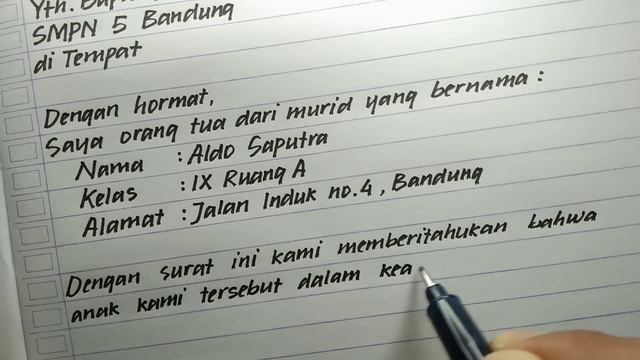 Yth.
SMPN 5 Bandung
di Tempat
Dengan hormat,
Saya orang tua dari murid yang bernama :
Nama : Aldo Saputra
Kelas : IX Ruang A
Alamat : Jalan Induk no.4, Bandung
Dengan surat ini kami memberitahukan bahwa
anak kami tersebut dalam kea